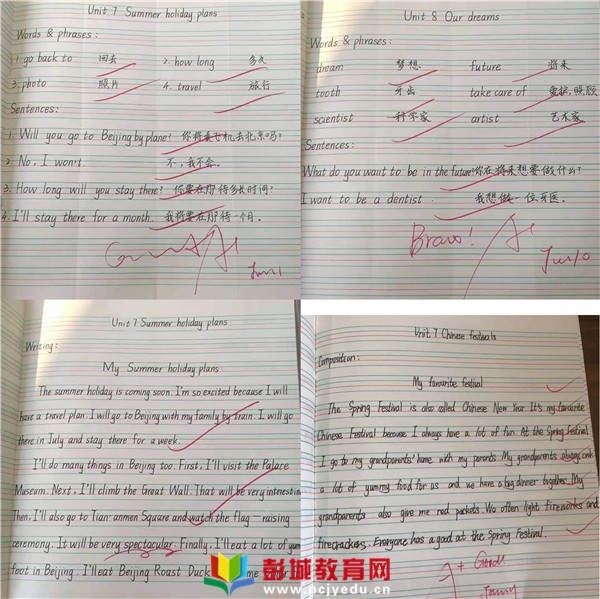 Unit 7 Summer holiday plans
Words & phrases:
1. go back to 回去 2. how long 多久
3. photo 照片 4. travel 旅行
Sentences:
1. Will you go to Beijing by plane? 你将乘飞机去北京吗?
2. No, I won't. 不,我不会。
3. How long will you stay there? 你要在那待多长时间?
4. I'll stay there for a month. 我将要在那待一个月。
A+
June 1
Unit 8 Our dreams
Words & phrases:
dream 梦想 future 将来
tooth 牙齿 take care of 爱护,照顾
scientist 科学家 artist 艺术家
Sentences:
What do you want to be in the future? 你在将来想要做什么?
I want to be a dentist. 我想做一位牙医。
Bravo! A+
Jun 10
Unit 7 Summer holiday plans
Writing:
My Summer holiday plans
The summer holiday is coming soon. I'm so excited because I will
have a travel plan. I will go to Beijing with my family by train. I will go
there in July and stay there for a week.
I'll do many things in Beijing too. First, I'll visit the Palace
Museum. Next, I'll climb the Great Wall. That will be very interestin
Then, I'll also go to Tian'anmen Square and watch the flag-raising
ceremony. It will be very spectacular. Finally, I'll eat a lot of yum
foot in Beijing. I'll eat Beijing Roast Duck
Unit 7 Chinese festivals
Composition:
My favourite festival
The Spring Festival is also called Chinese New Year. It's my favourite
Chinese Festival because I always have a lot of fun. At the Spring Festival,
I go to my grandparents' home with my parents. My grandparents always cook
a lot of yummy food for us and we have a big dinner together. My
grandparents also give me red packets. We often light fireworks and
firecrackers. Everyone has a good at the Spring Festival.
A+ Good!
彭城教育网
www.pcjyedu.com